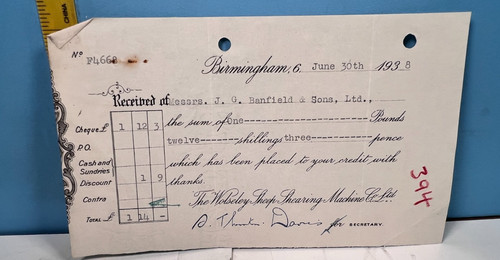 CHINA
Nº F4668
Birmingham, 6, June 30th 1938
Received of Messrs. J. G. Banfield & Sons, Ltd.,
the sum of One----------------------Pounds
Cheque £ 1 12 3
twelve-------shillings three-----------pence
P.O.
which has been placed to your credit with
Cash and Sundries
Discount 1 9
thanks.
Contra
The Wolseley Sheep Shearing Machine Co. Ltd.
TOTAL £ 1 14 -
Davis for SECRETARY.
394